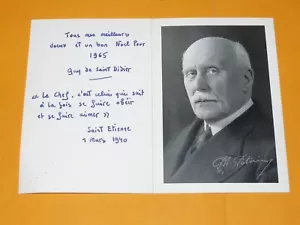 Tous mes meilleurs
voeux et un bon Noël pour
1965
Guy de Saint Didier
« Le Chef, c'est celui qui sait
à la fois se faire obéir
et se faire aimer »
Saint Etienne
1 Mars 1940
Ph. Pétain